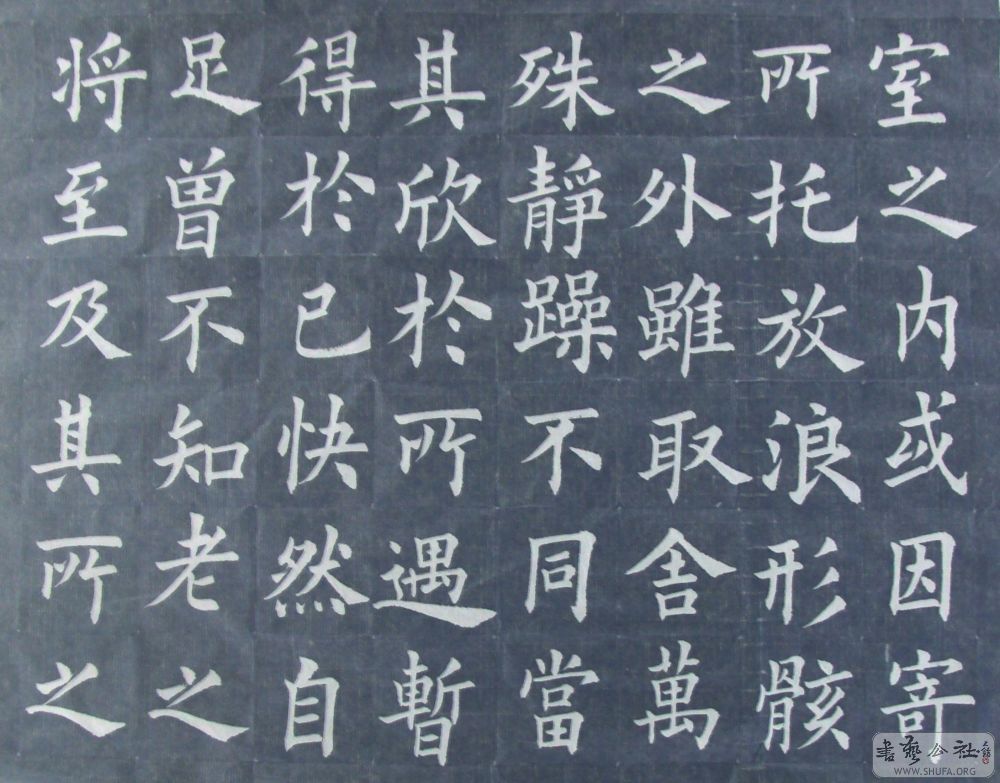 室之内或因寄
所托放浪形骸
之外雖取舍萬
殊靜躁不同當
其欣於所遇暫
得於己快然自
足曾不知老之
将至及其所之
書藝公社
WWW.SHUFA.ORG